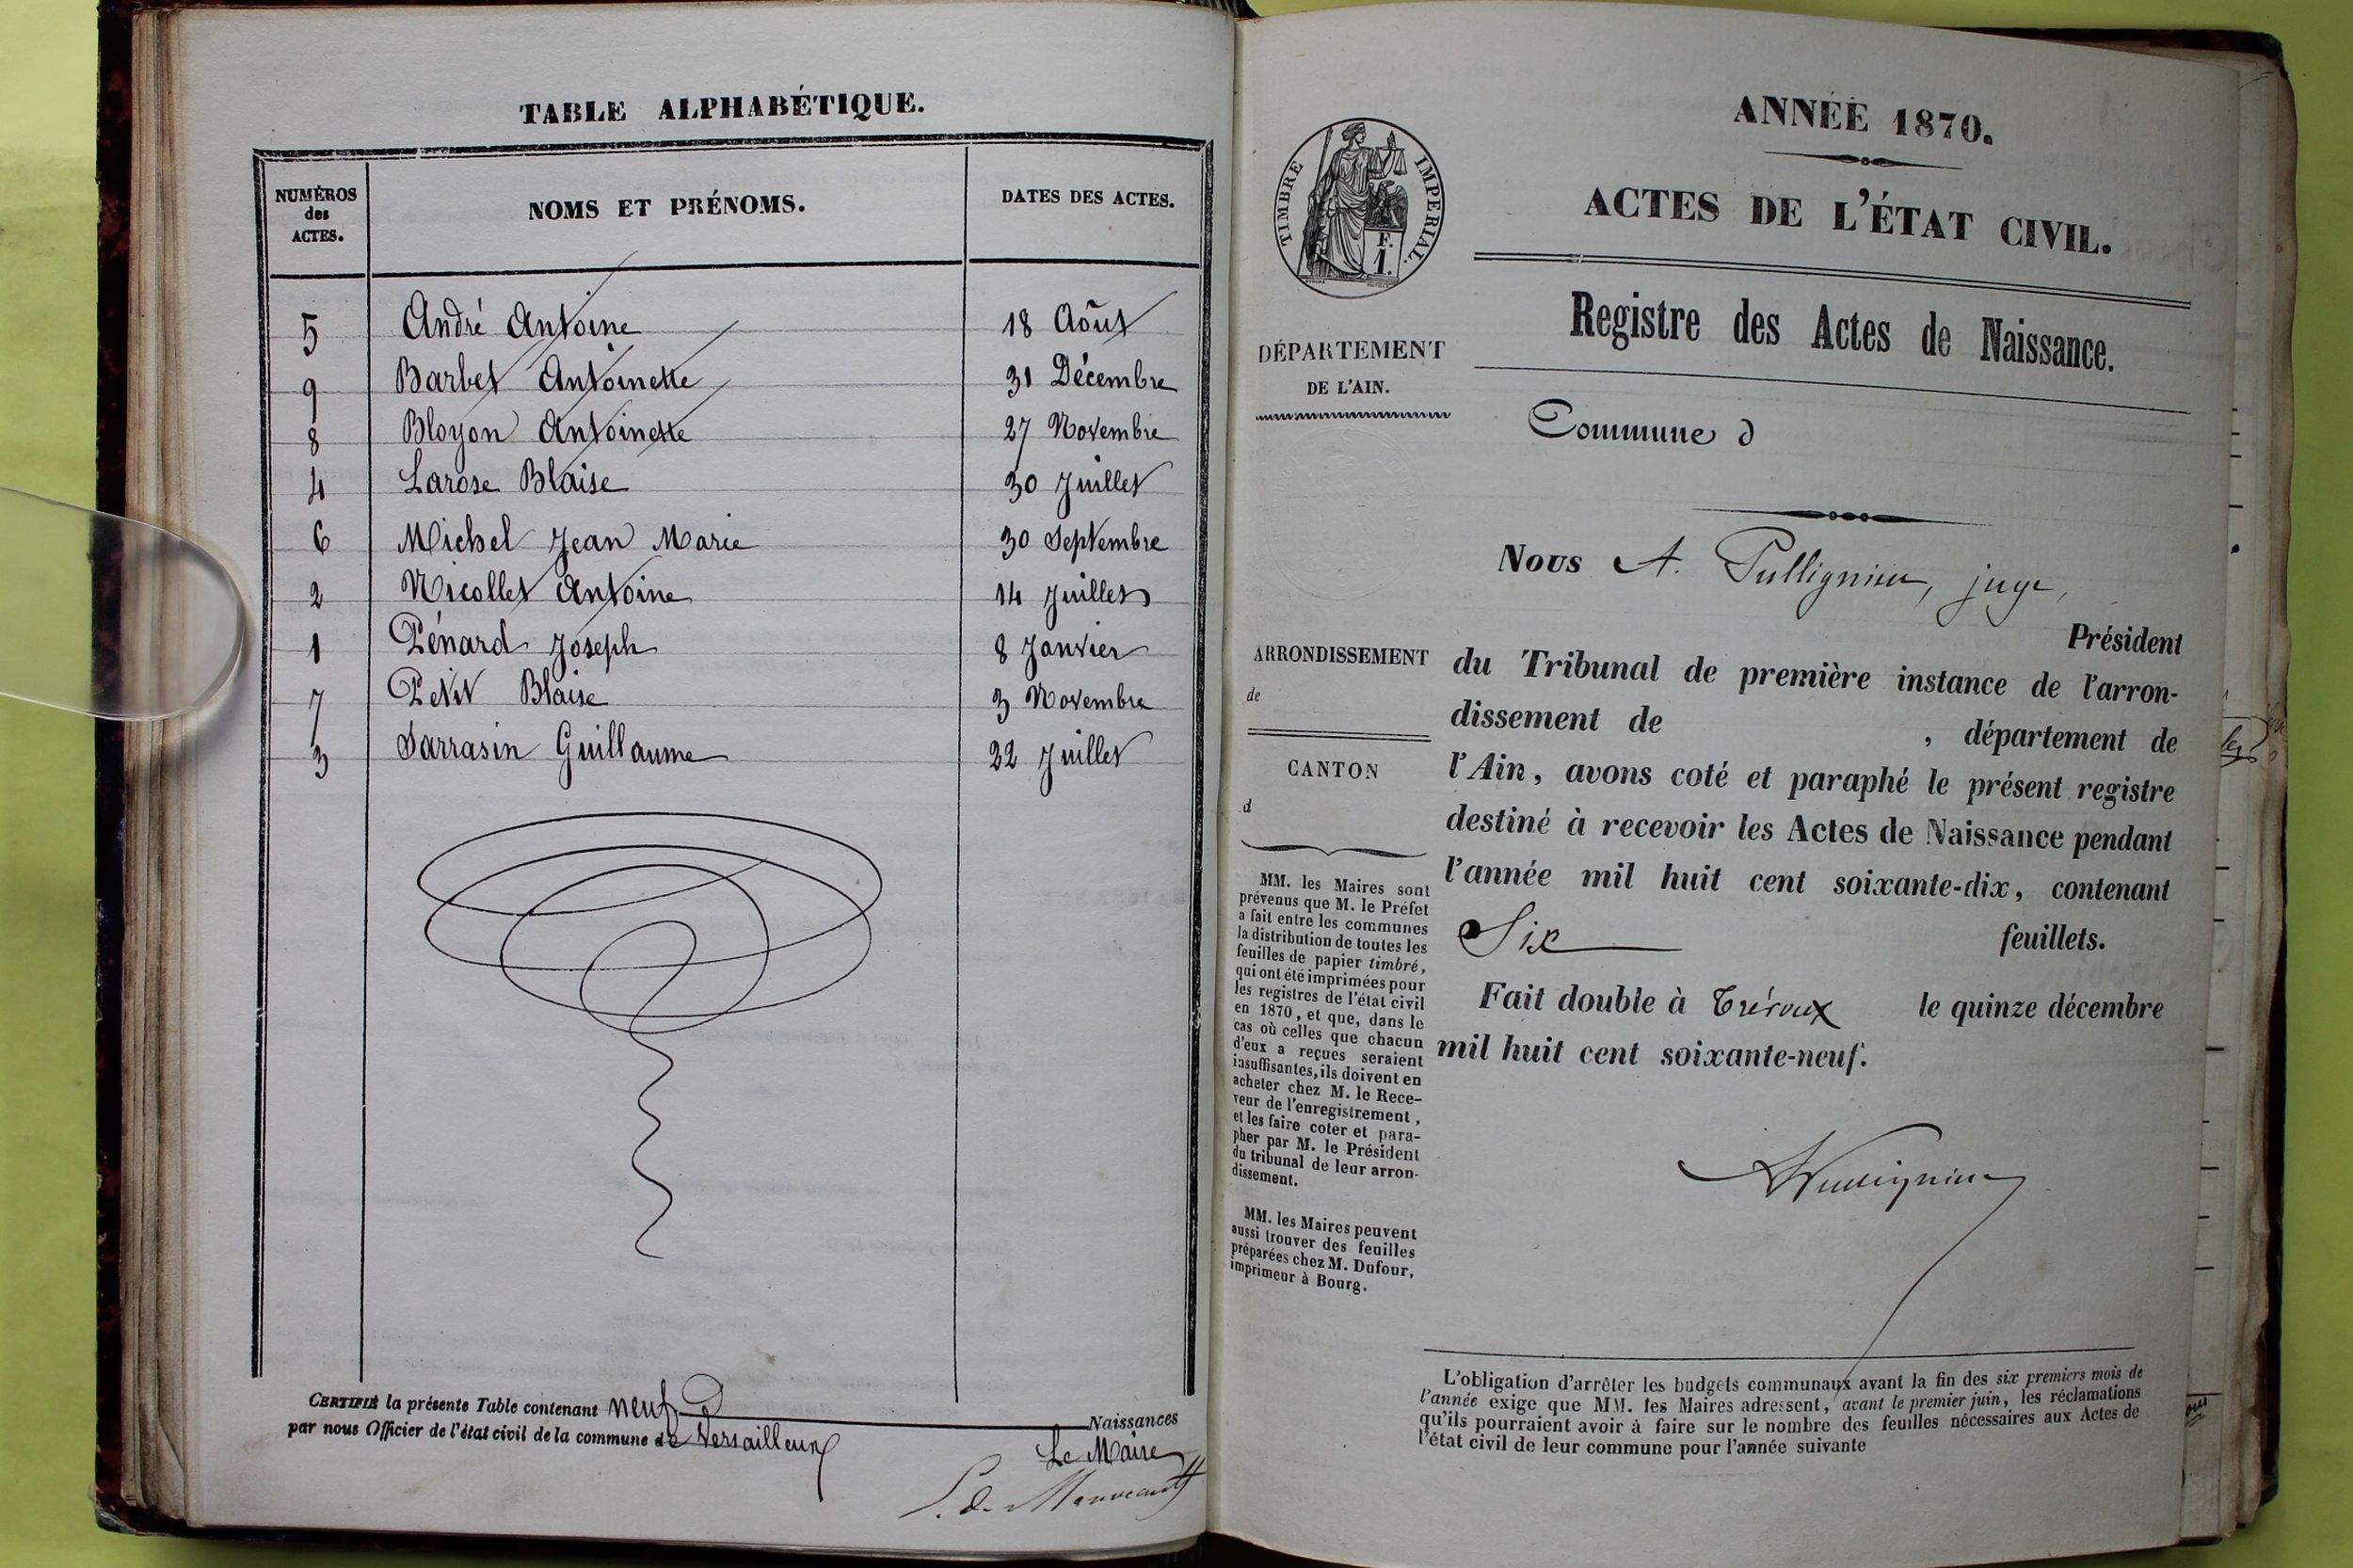 TABLE ALPHABÉTIQUE.
NUMÉROS des ACTES.
NOMS ET PRÉNOMS.
DATES DES ACTES.
5 André Antoine 18 Août
9 Barbet Antoinette 31 Décembre
8 Bloyon Antoinette 27 Novembre
4 Larose Blaise 30 Juillet
6 Michel Jean Marie 30 Septembre
2 Nicollet Antoine 14 Juillet
1 Pénard Joseph 8 Janvier
7 Petit Blaise 3 Novembre
3 Sarrasin Guillaume 22 Juillet
CERTIFIÉ la présente Table contenant neuf Naissances
par nous Officier de l'état civil de la commune de Versailleux
Le Maire
ANNÉE 1870.
ACTES DE L'ÉTAT CIVIL.
TIMBRE IMPERIAL.
F.
1.
Registre des Actes de Naissance.
DÉPARTEMENT
DE L'AIN.
Commune d
Nous A. Pullignieu, juge,
Président
du Tribunal de première instance de l'arron-
dissement de , département de
l'Ain, avons coté et paraphé le présent registre
destiné à recevoir les Actes de Naissance pendant
l'année mil huit cent soixante-dix, contenant
Six feuillets.
Fait double à Trévoux le quinze décembre
mil huit cent soixante-neuf.
ARRONDISSEMENT
de
CANTON
d
MM. les Maires sont
prévenus que M. le Préfet
a fait entre les communes
la distribution de toutes les
feuilles de papier timbré,
qui ont été imprimées pour
les registres de l'état civil
en 1870, et que, dans le
cas où celles que chacun
d'eux a reçues seraient
insuffisantes, ils doivent en
acheter chez M. le Rece-
veur de l'enregistrement,
et les faire coter et para-
pher par M. le Président
du tribunal de leur arron-
dissement.
MM. les Maires peuvent
aussi trouver des feuilles
préparées chez M. Dufour,
imprimeur à Bourg.
L'obligation d'arrêter les budgets communaux avant la fin des six premiers mois de
l'année exige que MM. les Maires adressent, avant le premier juin, les réclamations
qu'ils pourraient avoir à faire sur le nombre des feuilles nécessaires aux Actes de
l'état civil de leur commune pour l'année suivante